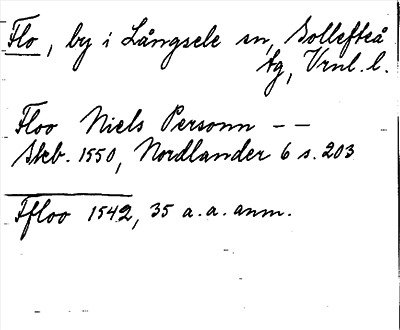 Flo, by i Långsele sn, Sollefteå
tg, Vrnl. l.
Floo Niels Personn – –
Skb. 1550, Nordlander 6 s. 203
Ffloo 1542, 35 a.a. anm.